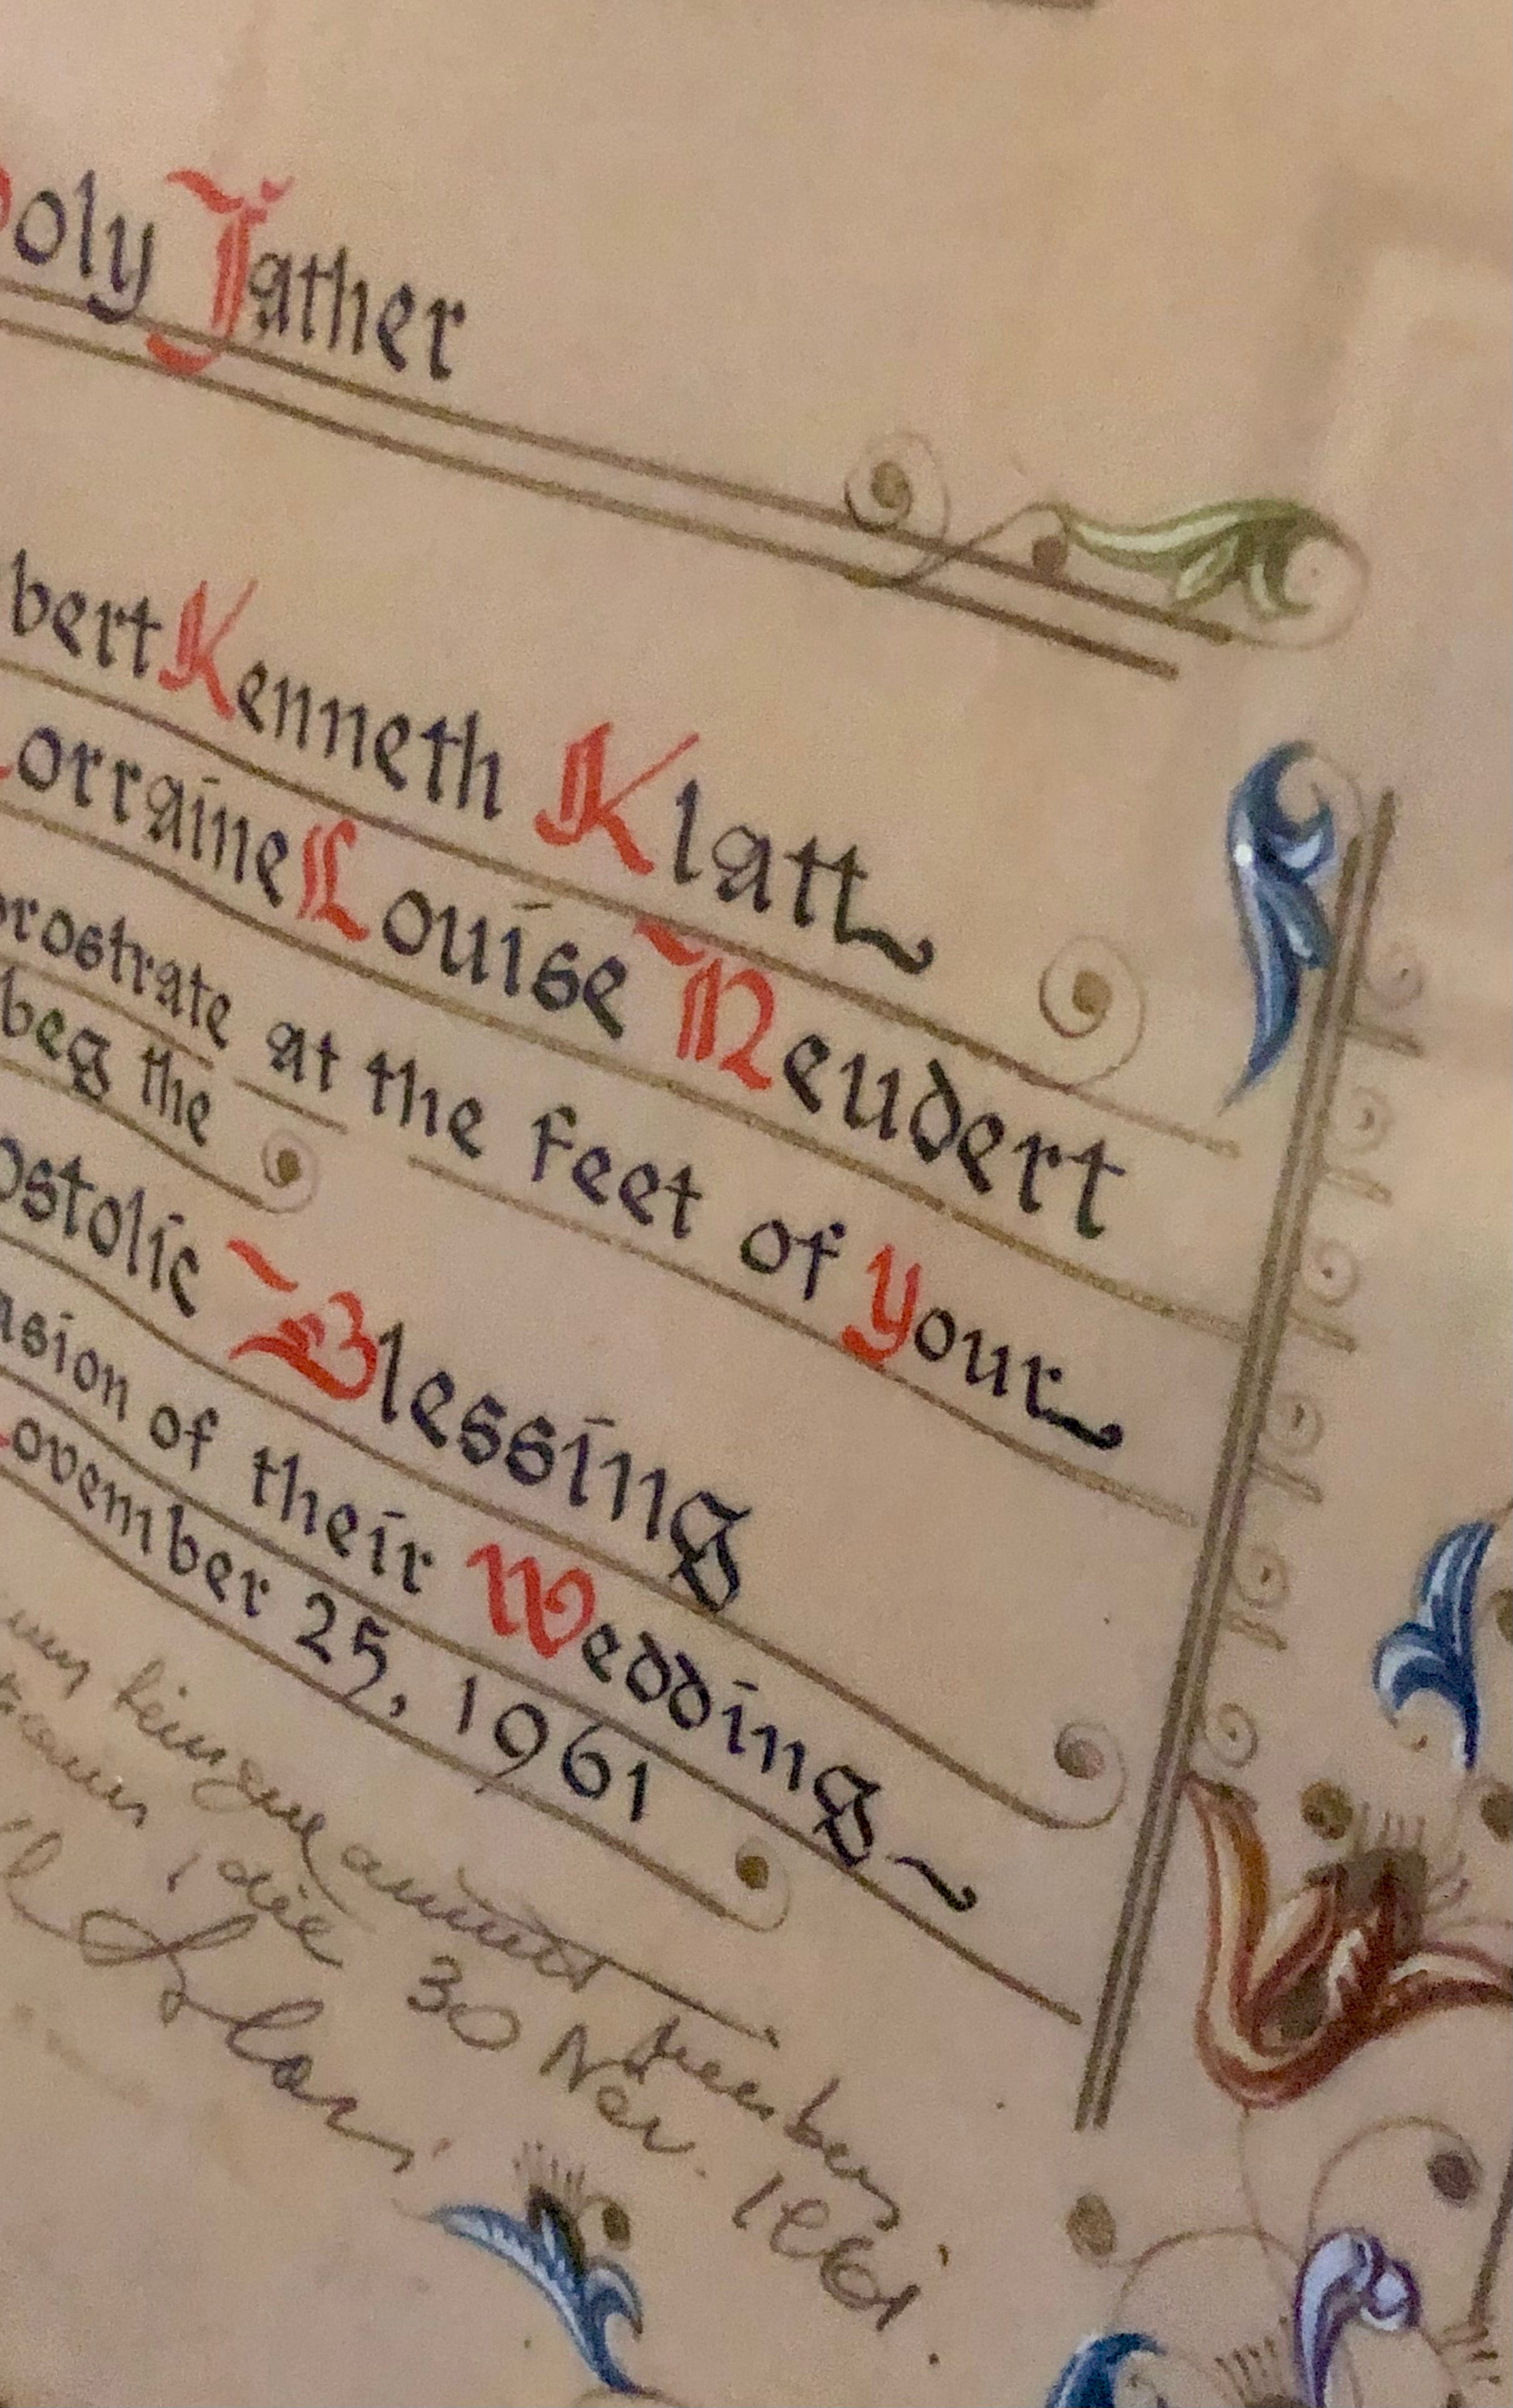 oly Father
bert Kenneth Klatt
Lorraine Louise Neudert
prostrate at the feet of Your
beg the
ostolic Blessing
asion of their Wedding
ovember 25, 1961
die 30 Nov. 1961.